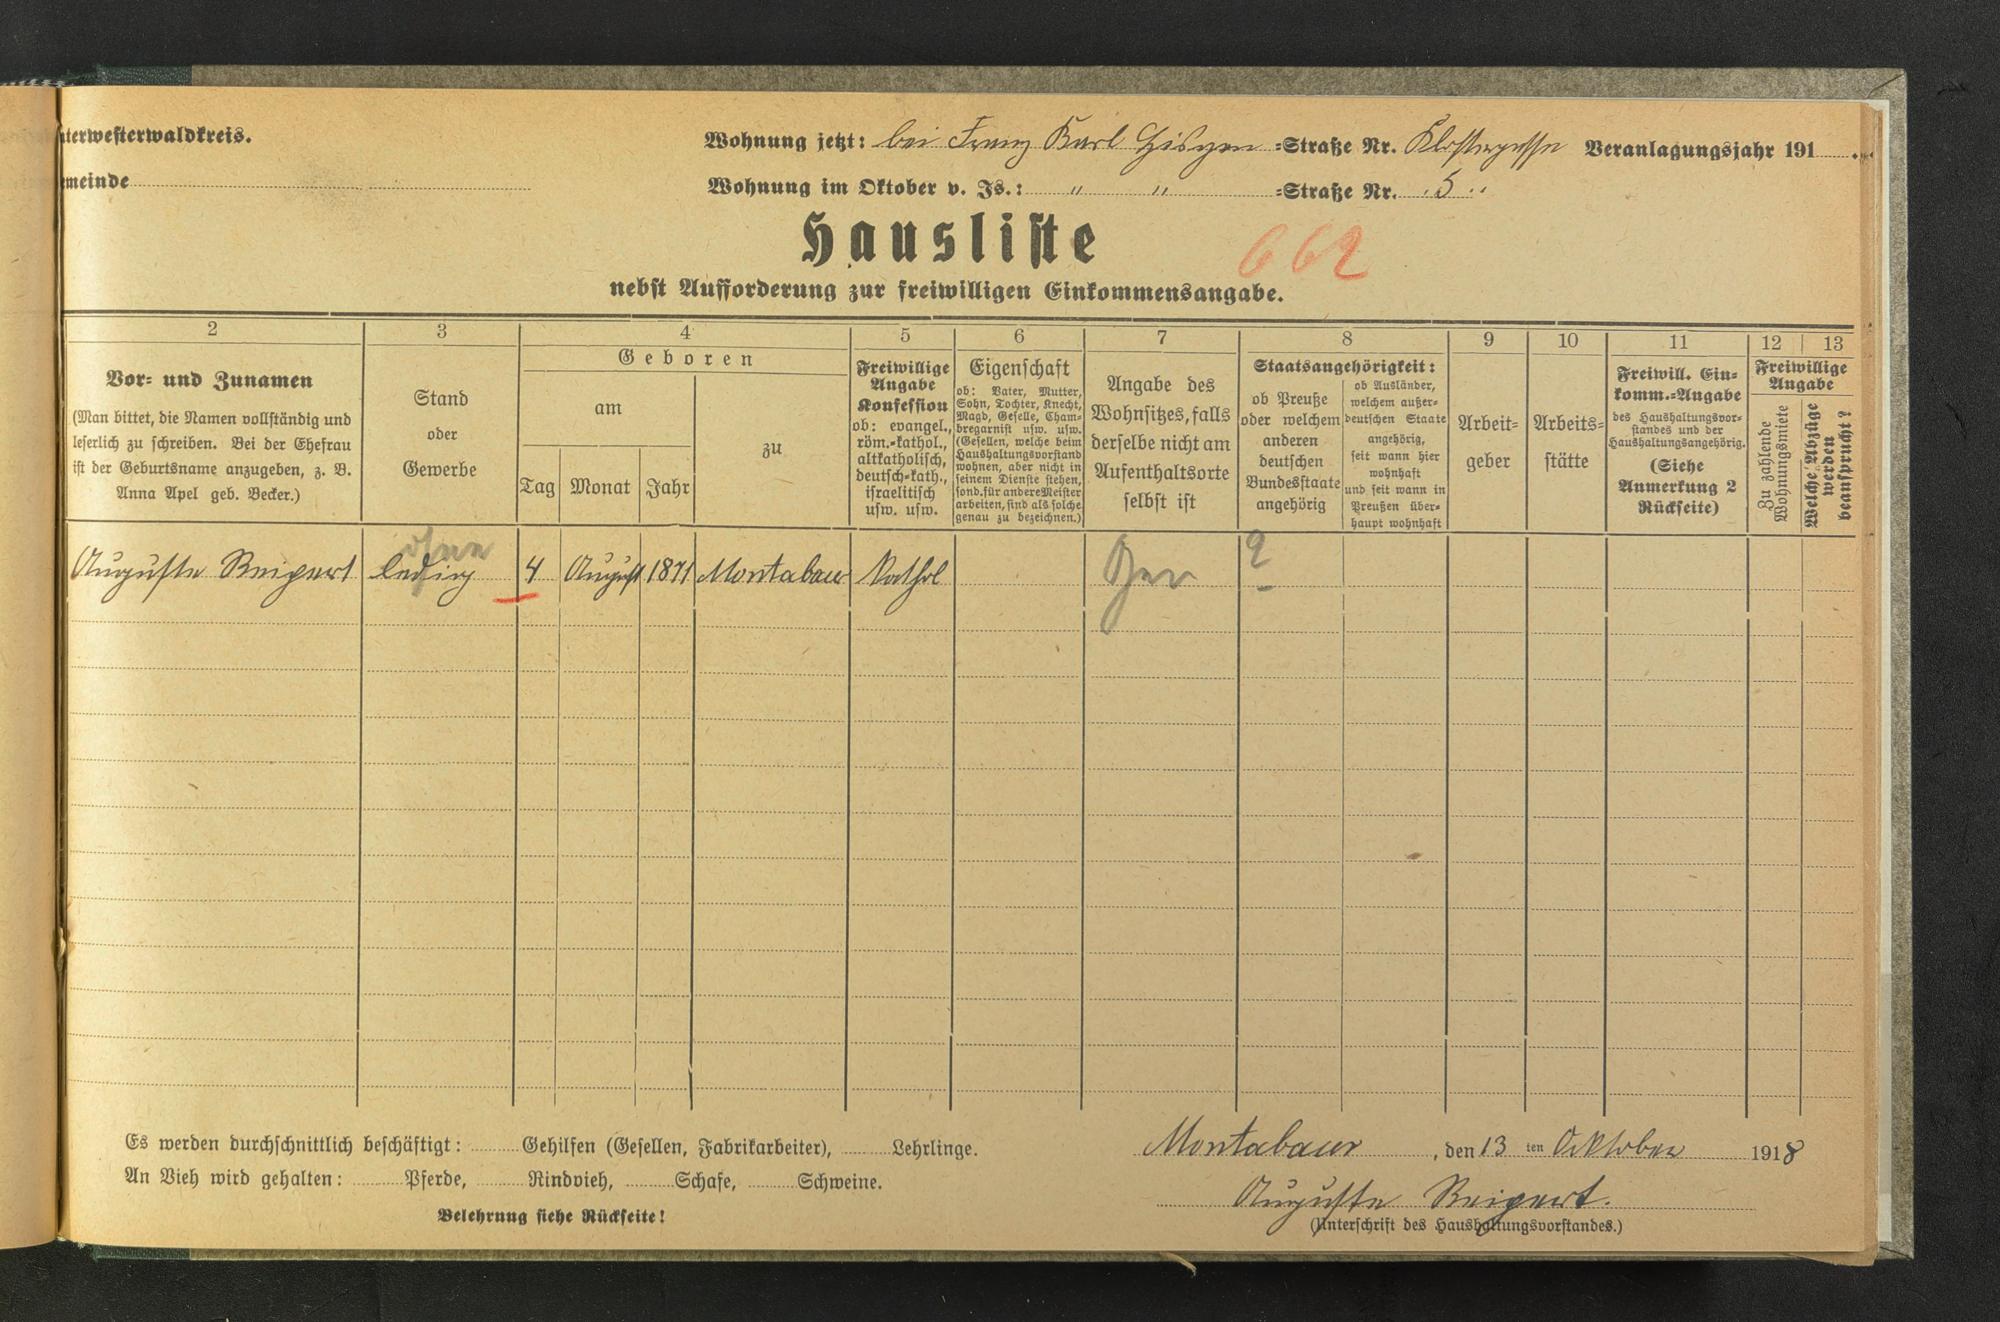 nterwesterwaldkreis.
Wohnung jetzt: bei Franz Karl -Straße Nr. Klostergasse Veranlagungsjahr 191
meinde
Wohnung im Oktober v. Js.: " " -Straße Nr. 5
Hausliste
662
nebst Aufforderung zur freiwilligen Einkommensangabe.
2 3 4 5 6 7 8 9 10 11 12 13
Vor- und Zunamen
(Man bittet, die Namen vollständig und
leserlich zu schreiben. Bei der Ehefrau
ist der Geburtsname anzugeben, z. B.
Anna Apel geb. Becker.)
Stand
oder
Gewerbe
Geboren
am
Tag Monat Jahr
zu
Freiwillige
Angabe
Konfession
ob: evangel.,
röm.-kathol.,
altkatholisch,
deutsch-kath.,
israelitisch
usw. usw.
Eigenschaft
ob: Vater, Mutter,
Sohn, Tochter, Knecht,
Magd, Geselle, Cham-
bregarnist usw. usw.
(Gesellen, welche beim
Haushaltungsvorstand
wohnen, aber nicht in
seinem Dienste stehen,
sond. für andere Meister
arbeiten, sind als solche
genau zu bezeichnen.)
Angabe des
Wohnsitzes, falls
derselbe nicht am
Aufenthaltsorte
selbst ist
Staatsangehörigkeit:
ob Preuße
oder welchem
anderen
deutschen
Bundesstaate
angehörig
ob Ausländer,
welchem außer-
deutschen Staate
angehörig,
seit wann hier
wohnhaft
und seit wann in
Preußen über-
haupt wohnhaft
Arbeit-
geber
Arbeits-
stätte
Freiwill. Ein-
komm.-Angabe
des Haushaltungsvor-
standes und der
Haushaltungsangehörig.
(Siehe
Anmerkung 2
Rückseite)
Freiwillige
Angabe
Zu zahlende
Wohnungsmiete
Welche Abzüge
werden
beansprucht?
ohne
Auguste Reipert ledig 4 August 1871 Montabaur Kathol
Es werden durchschnittlich beschäftigt: Gehilfen (Gesellen, Fabrikarbeiter), Lehrlinge.
An Vieh wird gehalten: Pferde, Rindvieh, Schafe, Schweine.
Belehrung siehe Rückseite!
Montabaur, den 13 ten Oktober 1918
Auguste Reipert.
(Unterschrift des Haushaltungsvorstandes.)